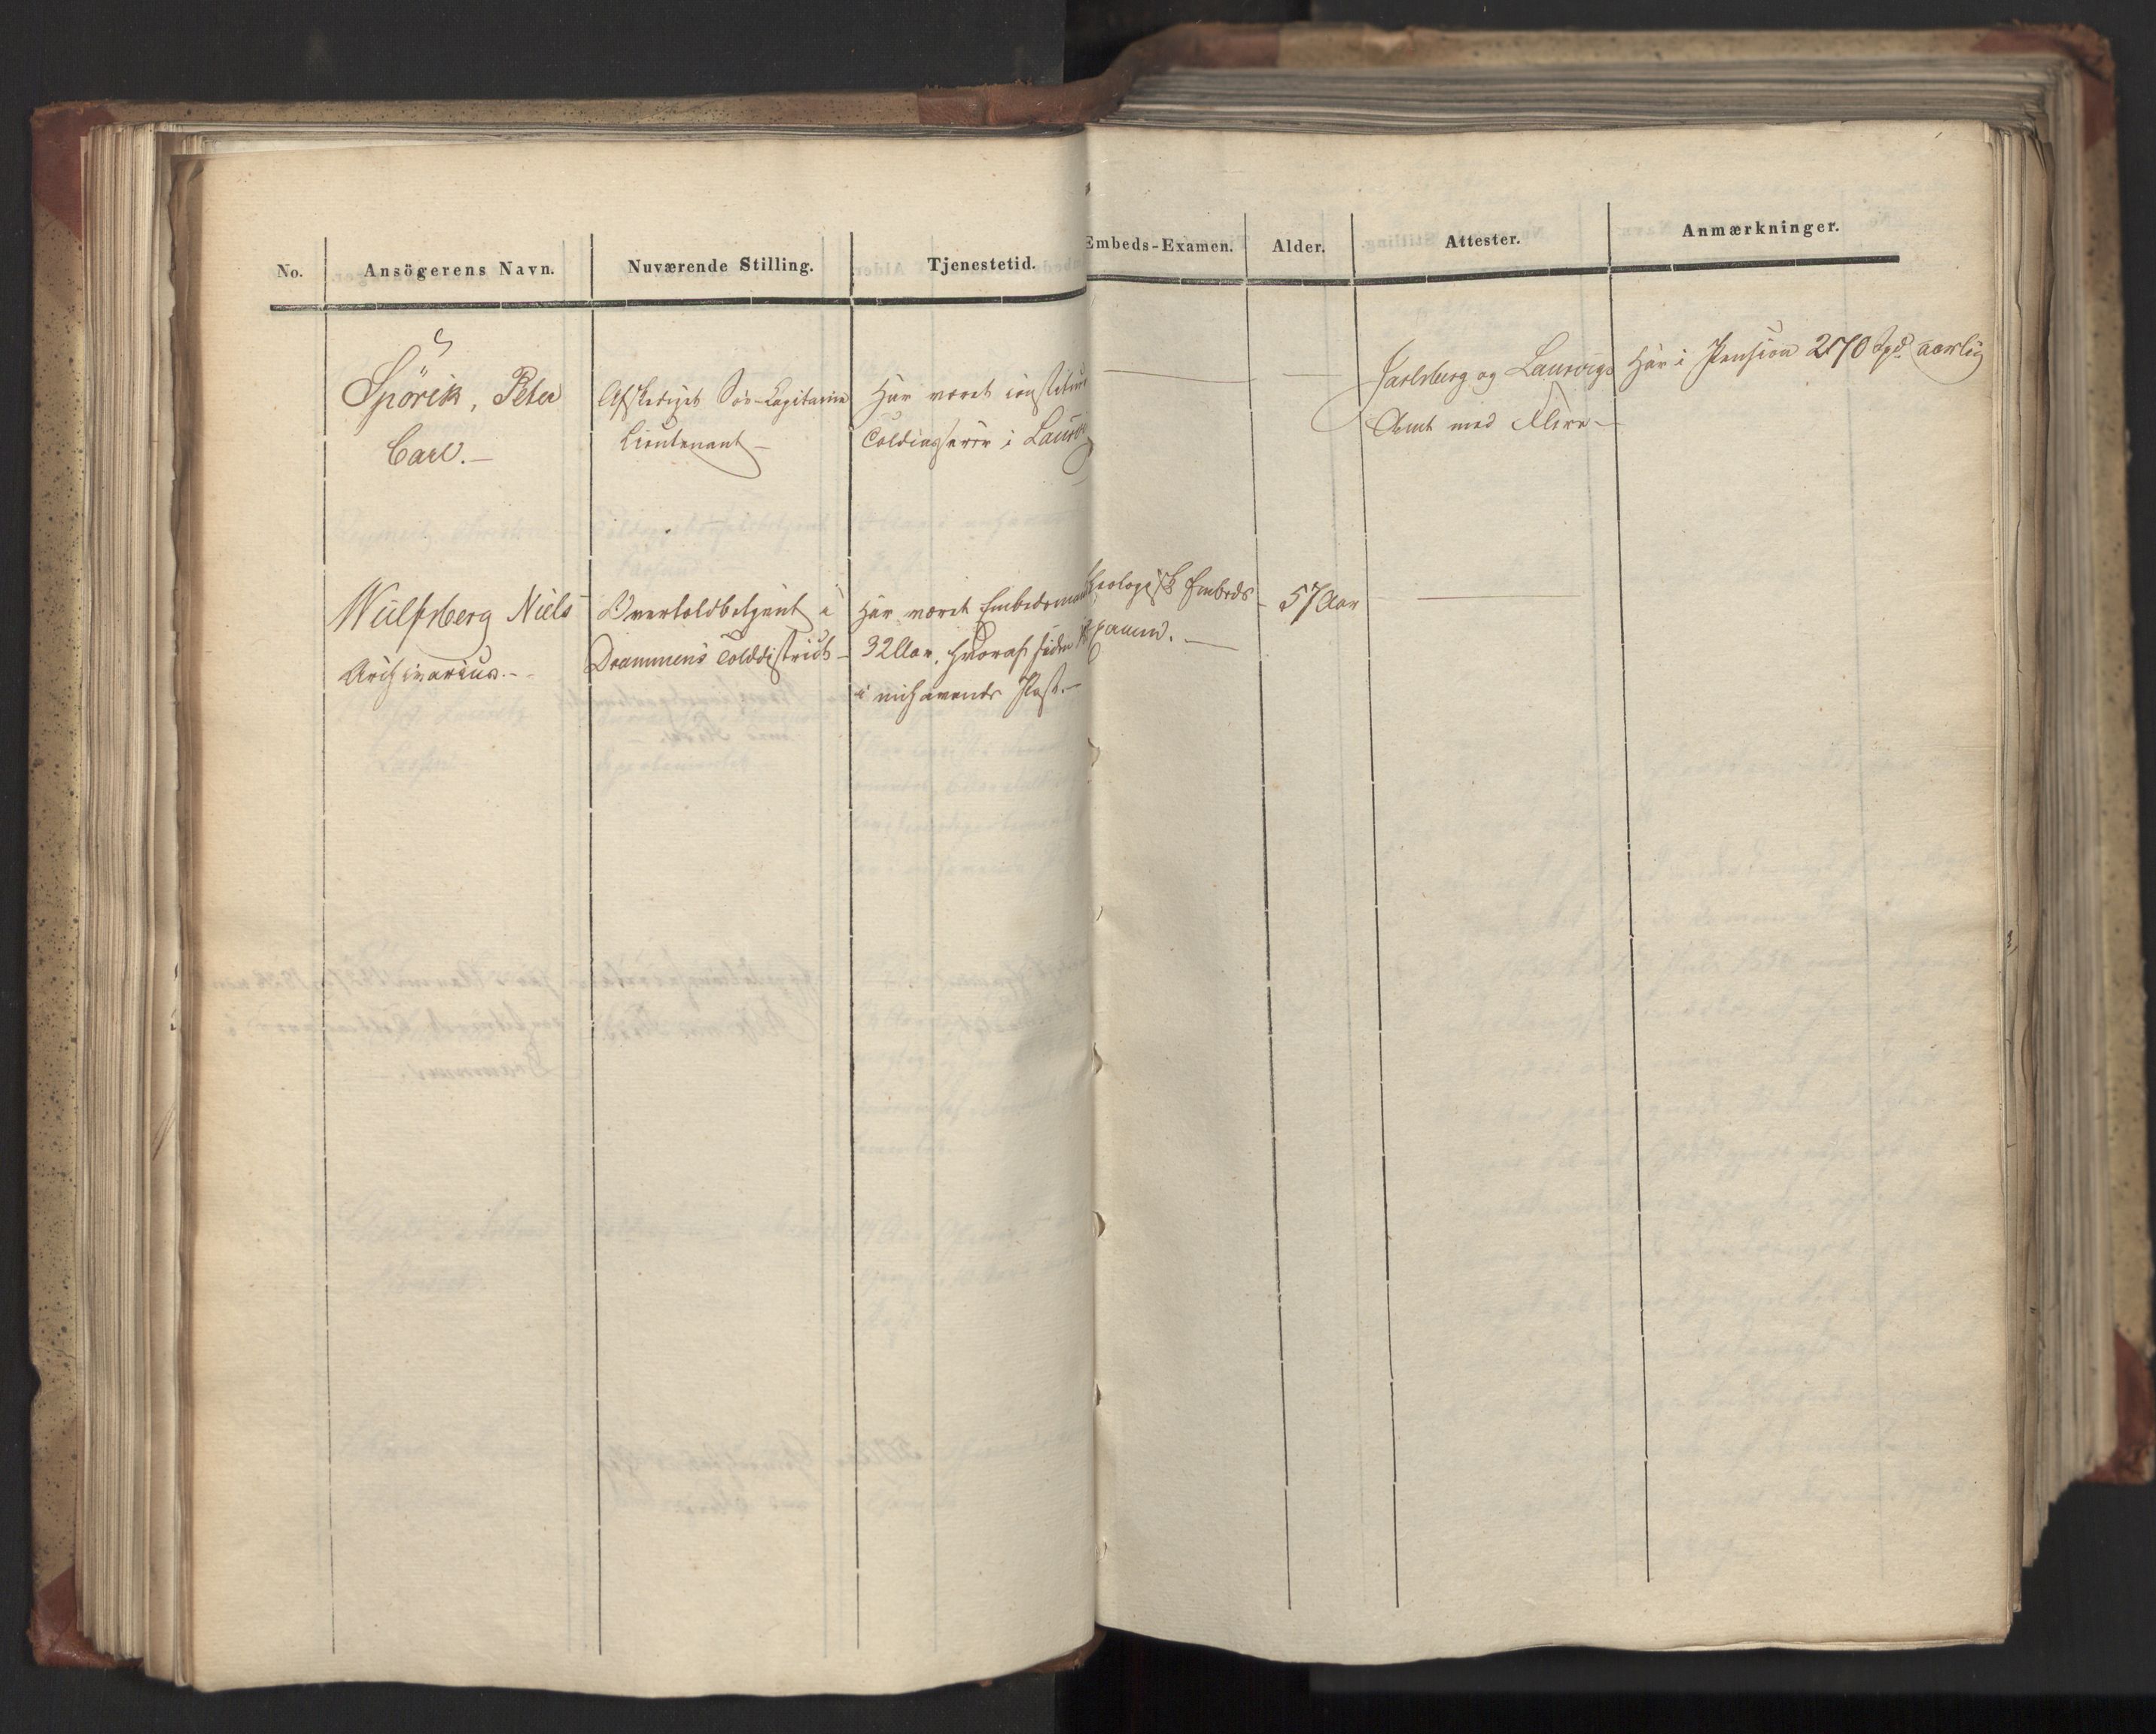 No. Ansögerens Navn. Nuværende Stilling. Tjenestetid. Embeds-Examen. Alder. Attester. Anmærkninger.
Spörck, Peter
Carl.—
Afskediget Sör-Capitaine
Lieutenant—
Har været constitueret
Toldinspecteur i Laurvig
Jarlsberg og Laurvigs
Amt med Flere—
Har i Pension 270 Spd. aarlig
Wulfsberg Niels
Archivarius.—
Overtoldbetjent i
Drammens Tolddistrict—
Har været Embedsmand
32 Aar, hvoraf siden
i nuhavende Post.—
theologisk Embeds
Examen.—
57 Aar